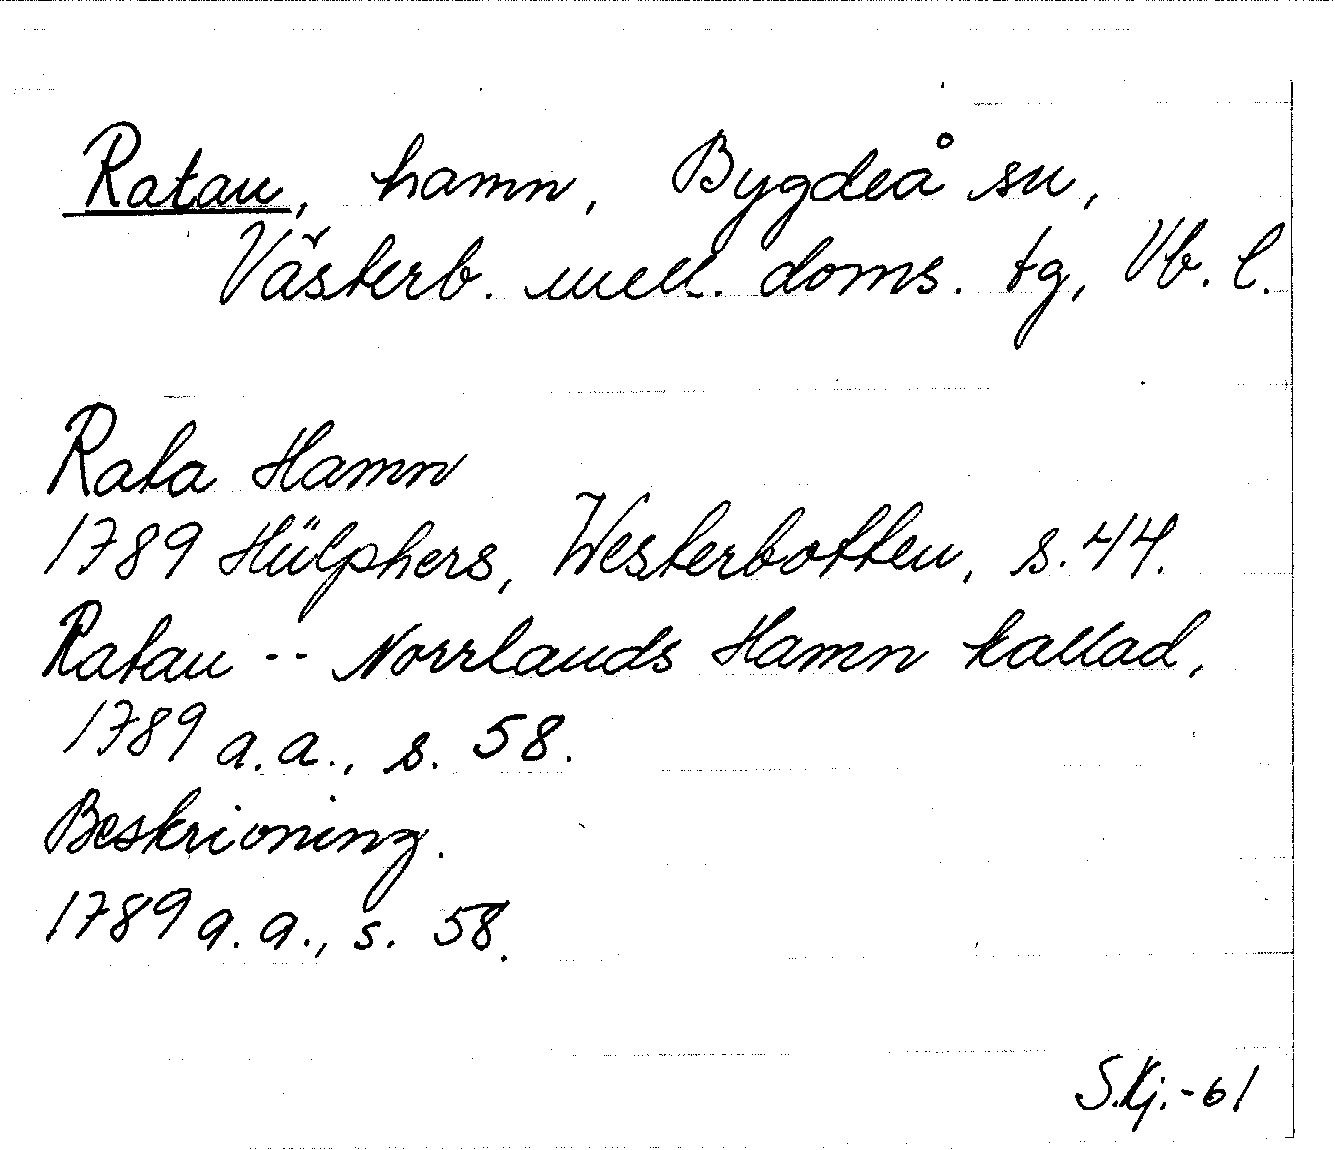 Ratan, hamn, Bygdeå sn,
Västerb. mell. doms. tg, Vb. l.
Rata Hamn
1789 Hülphers, Westerbotten, s. 44.
Ratan -- Norrlands Hamn kallad,
1789 a.a., s. 58.
Beskrivning.
1789 a.a., s. 58.
S.Kj.-61